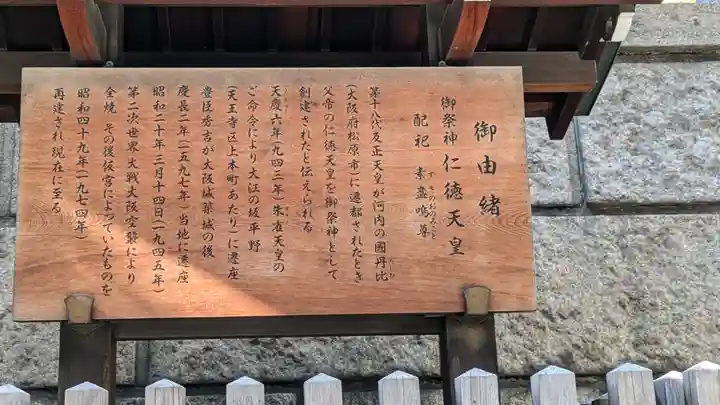 御由緒
御祭神 仁徳天皇
配祀 素盞嗚尊
すさのおのみこと
第十八代反正天皇が河内の國丹比
たじひ
(大阪府松原市)に遷都されたとき
父帝の仁徳天皇を御祭神として
創建されたと伝えられる
天慶六年(九四三年)朱雀天皇の
ご命令により大江の坂平野
(天王寺区上本町あたり)に遷座
豊臣秀吉が大阪城築城の後
慶長二年(一五九七年)当地に遷座
昭和二十年三月十四日(一九四五年)
第二次世界大戦大阪空襲により
全焼 その後仮宮によっていたものを
昭和四十九年(一九七四年)
再建され現在に至る